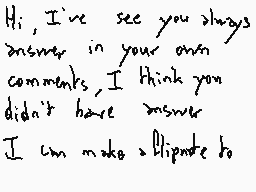 Hi, I've see you always
answer in your own
comments, I think you
didn't have answer
I can make a flipnote to